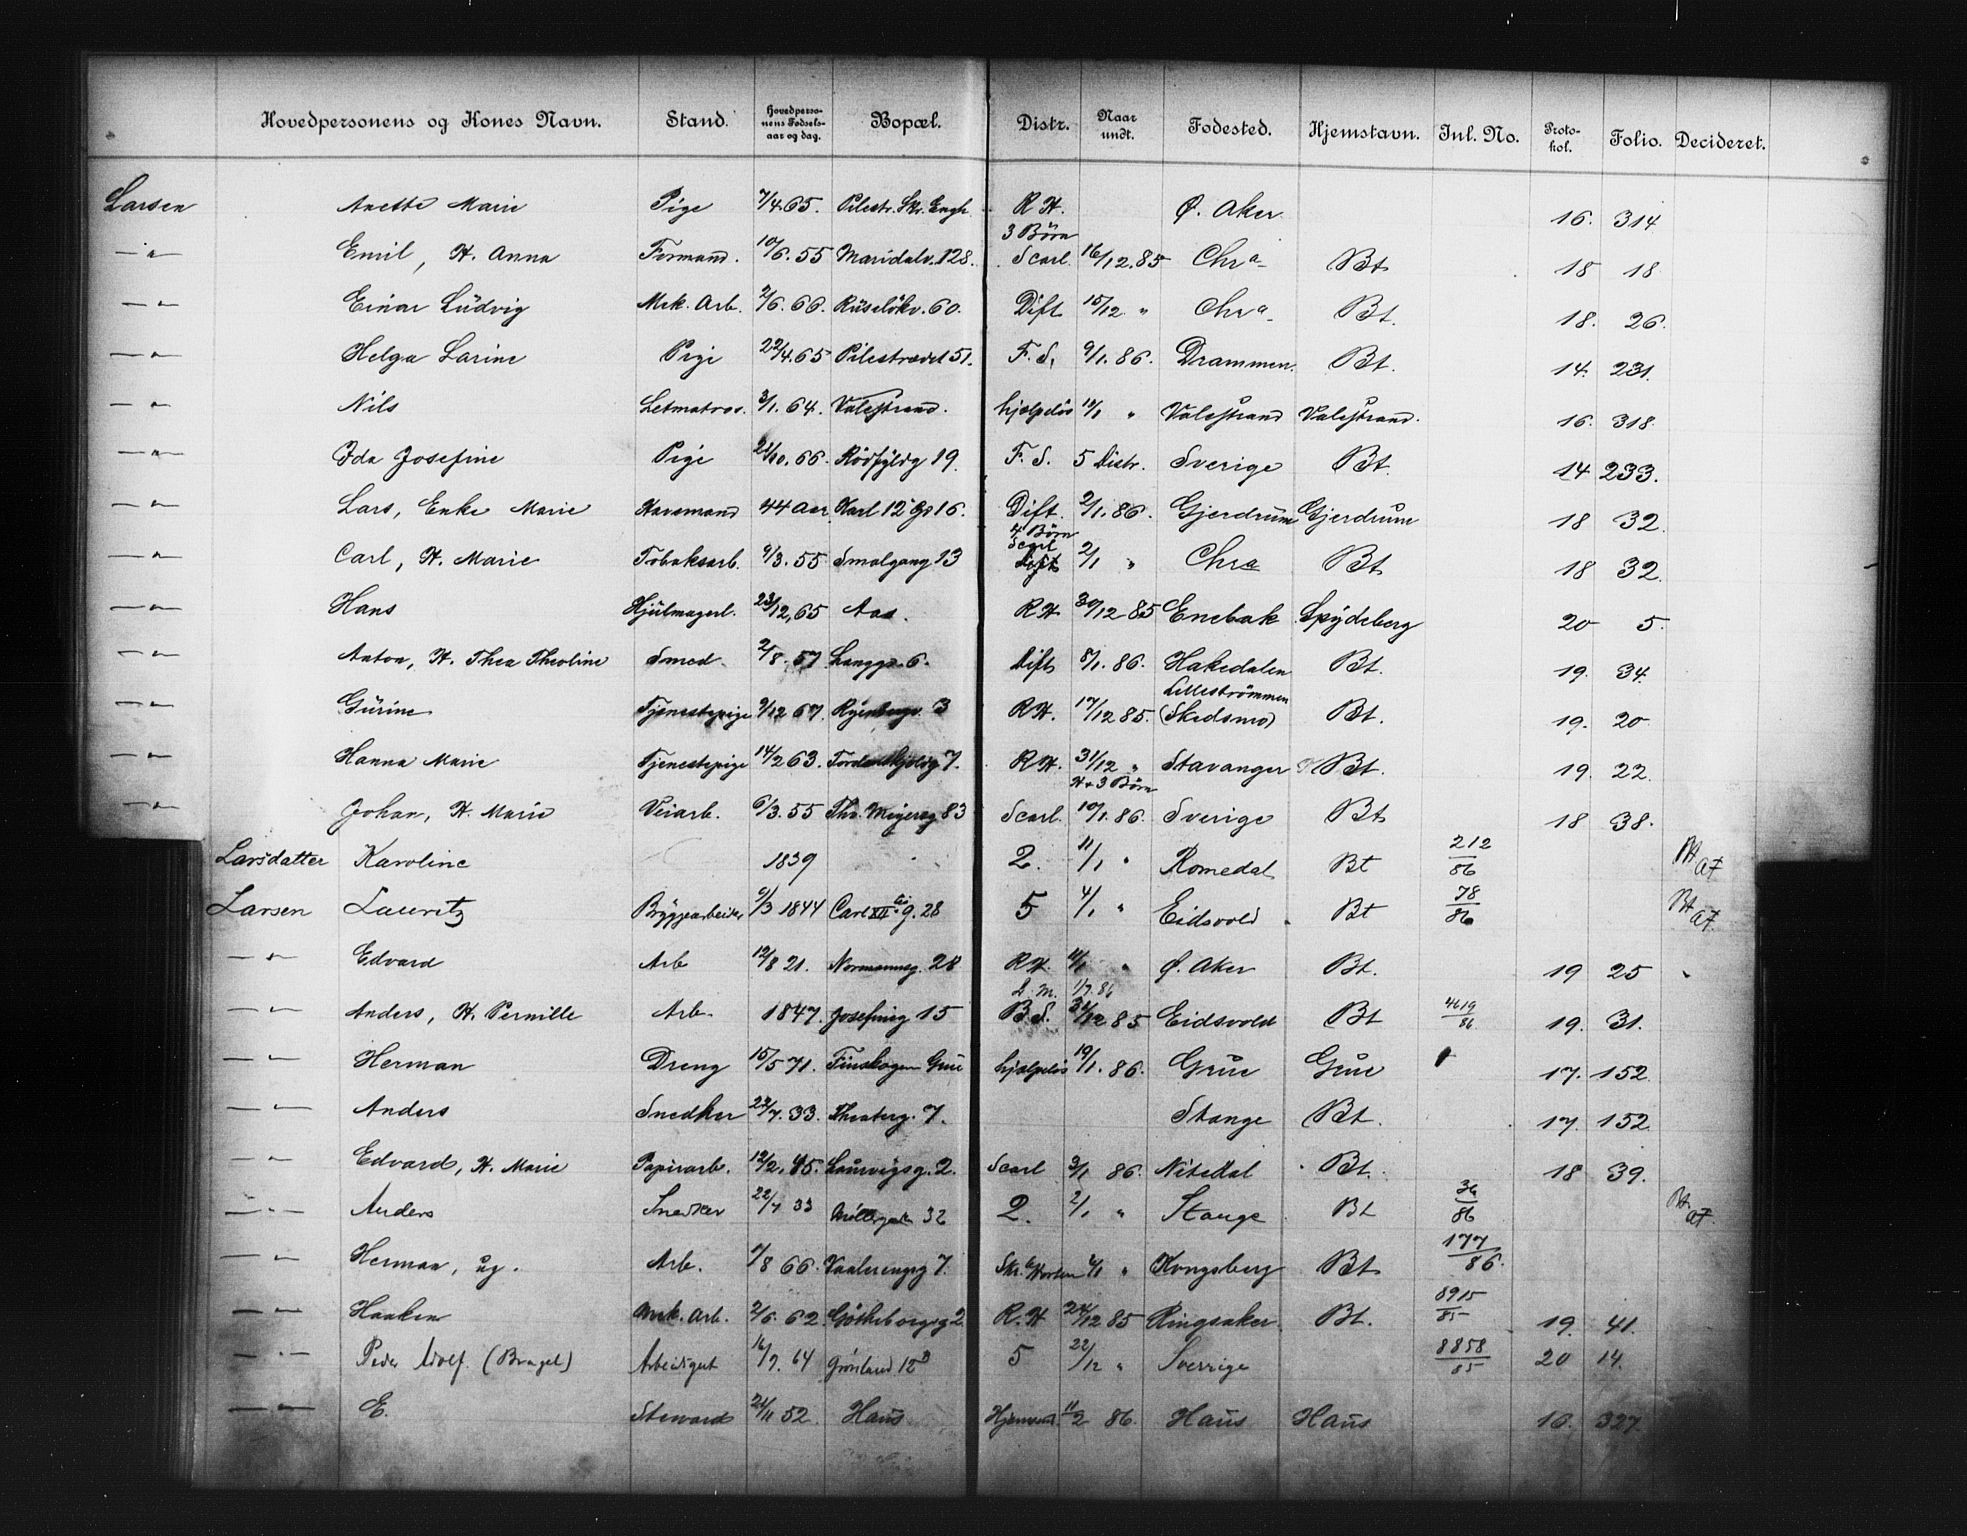 Hovedpersonens og Kones Navn. Stand. Hovedpersonens Fødselsaar og dag. Bopæl. Distr. Naar undt. Fødested. Hjemstavn. Jnl. No. Protokol. Folio. Decideret.
Larsen Anette Marie Pige 7/4.65. Pilestr. Skr. Engh R H. Ø. Aker 16. 314
3 Børn
— " — Emil, H. Anna Formand. 10/6.55 Maridalv. 128. Scarl. 16/12.85 Chra Bt 18 18
— " — Einar Ludvig Mek. Arb. 2/6.66. Ruseløkv. 60. Dift 15/12 " Chra Bt. 18. 26.
— " — Helga Larine Pige 22/4.65 Pilestrædet 51. F. S. 9/1.86. Drammen. Bt. 14. 231.
— " — Nils Letmatros. 3/1.64. Valestrand. hjælpeløs 12/1 " Valestrand Valestrand. 16. 318.
— " — Ida Josefine Pige 21/10.66. Rødfyldg 19. F. S. 5 Distr. Sverige Bt. 14 233.
— " — Lars, Enke Marie Havemand 44 Aar Karl 12 Gd 16. Dift. 2/1.86. Gjerdrum Gjerdrum 18 32.
4 Børn
Scarl
— " — Carl, H. Marie Tobaksarb. 9/3.55 Smalgang 13 Dift 2/1 " Chra Bt 18 32.
— " — Hans Hjulmagerl. 23/12.65 Aas. R H 30/12 85 Enebak Spydeberg 20 5.
— " — Anton, H. Thea Theoline Smed. 2/8.57 Langg. 6. Dift 8/1.86. Hakedalen Bt. 19. 34.
Lilleströmmen
— " — Gurine Tjenestepige 9/12 67. Ryenbergv. 3 R H. 17/12 85. (Skedsmo) Bt. 19. 20.
— " — Hanna Marie Tjenestepige 14/2 63. Tordenskjoldg 7. R H. 31/12 " Stavanger Bt. 19. 22.
H + 3 Børn
— " — Johan, H. Marie Veiarb. 6/3.55 Ths. Meyersg 83 Scarl. 10/1.86. Sverige Bt 18 38.
Larsdatter Karoline 1839 2. 11/1 " Romedal Bt 212/86 Bt. af
Larsen Lauritz Bryggearbeider 9/3 1844 Carl XII g. 28 5 4/1 " Eidsvold Bt 78/86 Bt. af.
— " — Edvard Arb 12/8 21. Normannsg. 28 R H. 11/1 " Ø. Aker Bt. 19 25
L. M. 1/7.86
— " — Anders, H. Pernille Arb. 1847. Josefineg 15 B. S. 31/12 85 Eidsvold Bt 4619/86 19. 31.
— " — Herman Dreng 15/5 71. Finskogen Grue hjælpeløs 19/1.86. Grue Grue 17. 152.
— " — Anders Snedker 22/7.33. Theaterg. 7. Stange Bt. 17. 152.
— " — Edvard, H. Marie Papirarb. 12/2.45. Laurvigsg. 2. Scarl 3/1 86. Nitedal Bt. 18 39.
— " — Anders Snedker 22/7 33 Møllergaden 32 2. 2/1 " Stange Bt 36/86 Bt. af.
— " — Herman, ug. Arb. 1/8 66. Vaalerengg 7. Skr. 4/1 " Kongsberg Bt 177/86.
— " — Haaken Mek. Arb. 2/6.62. Gøtheborgsg 2 R. H 24/12 85 Ringsaker. Bt. 8915/85 19. 41.
— " — Peder Adolf (Bragel) Arbeidsgut 16/7.64 Grønland 12 B 5 22/12 " Sverrige 8858/85 20 14.
— " — E. Steward 21/11 52. Haus 11/2 86. Haus Haus 16. 327